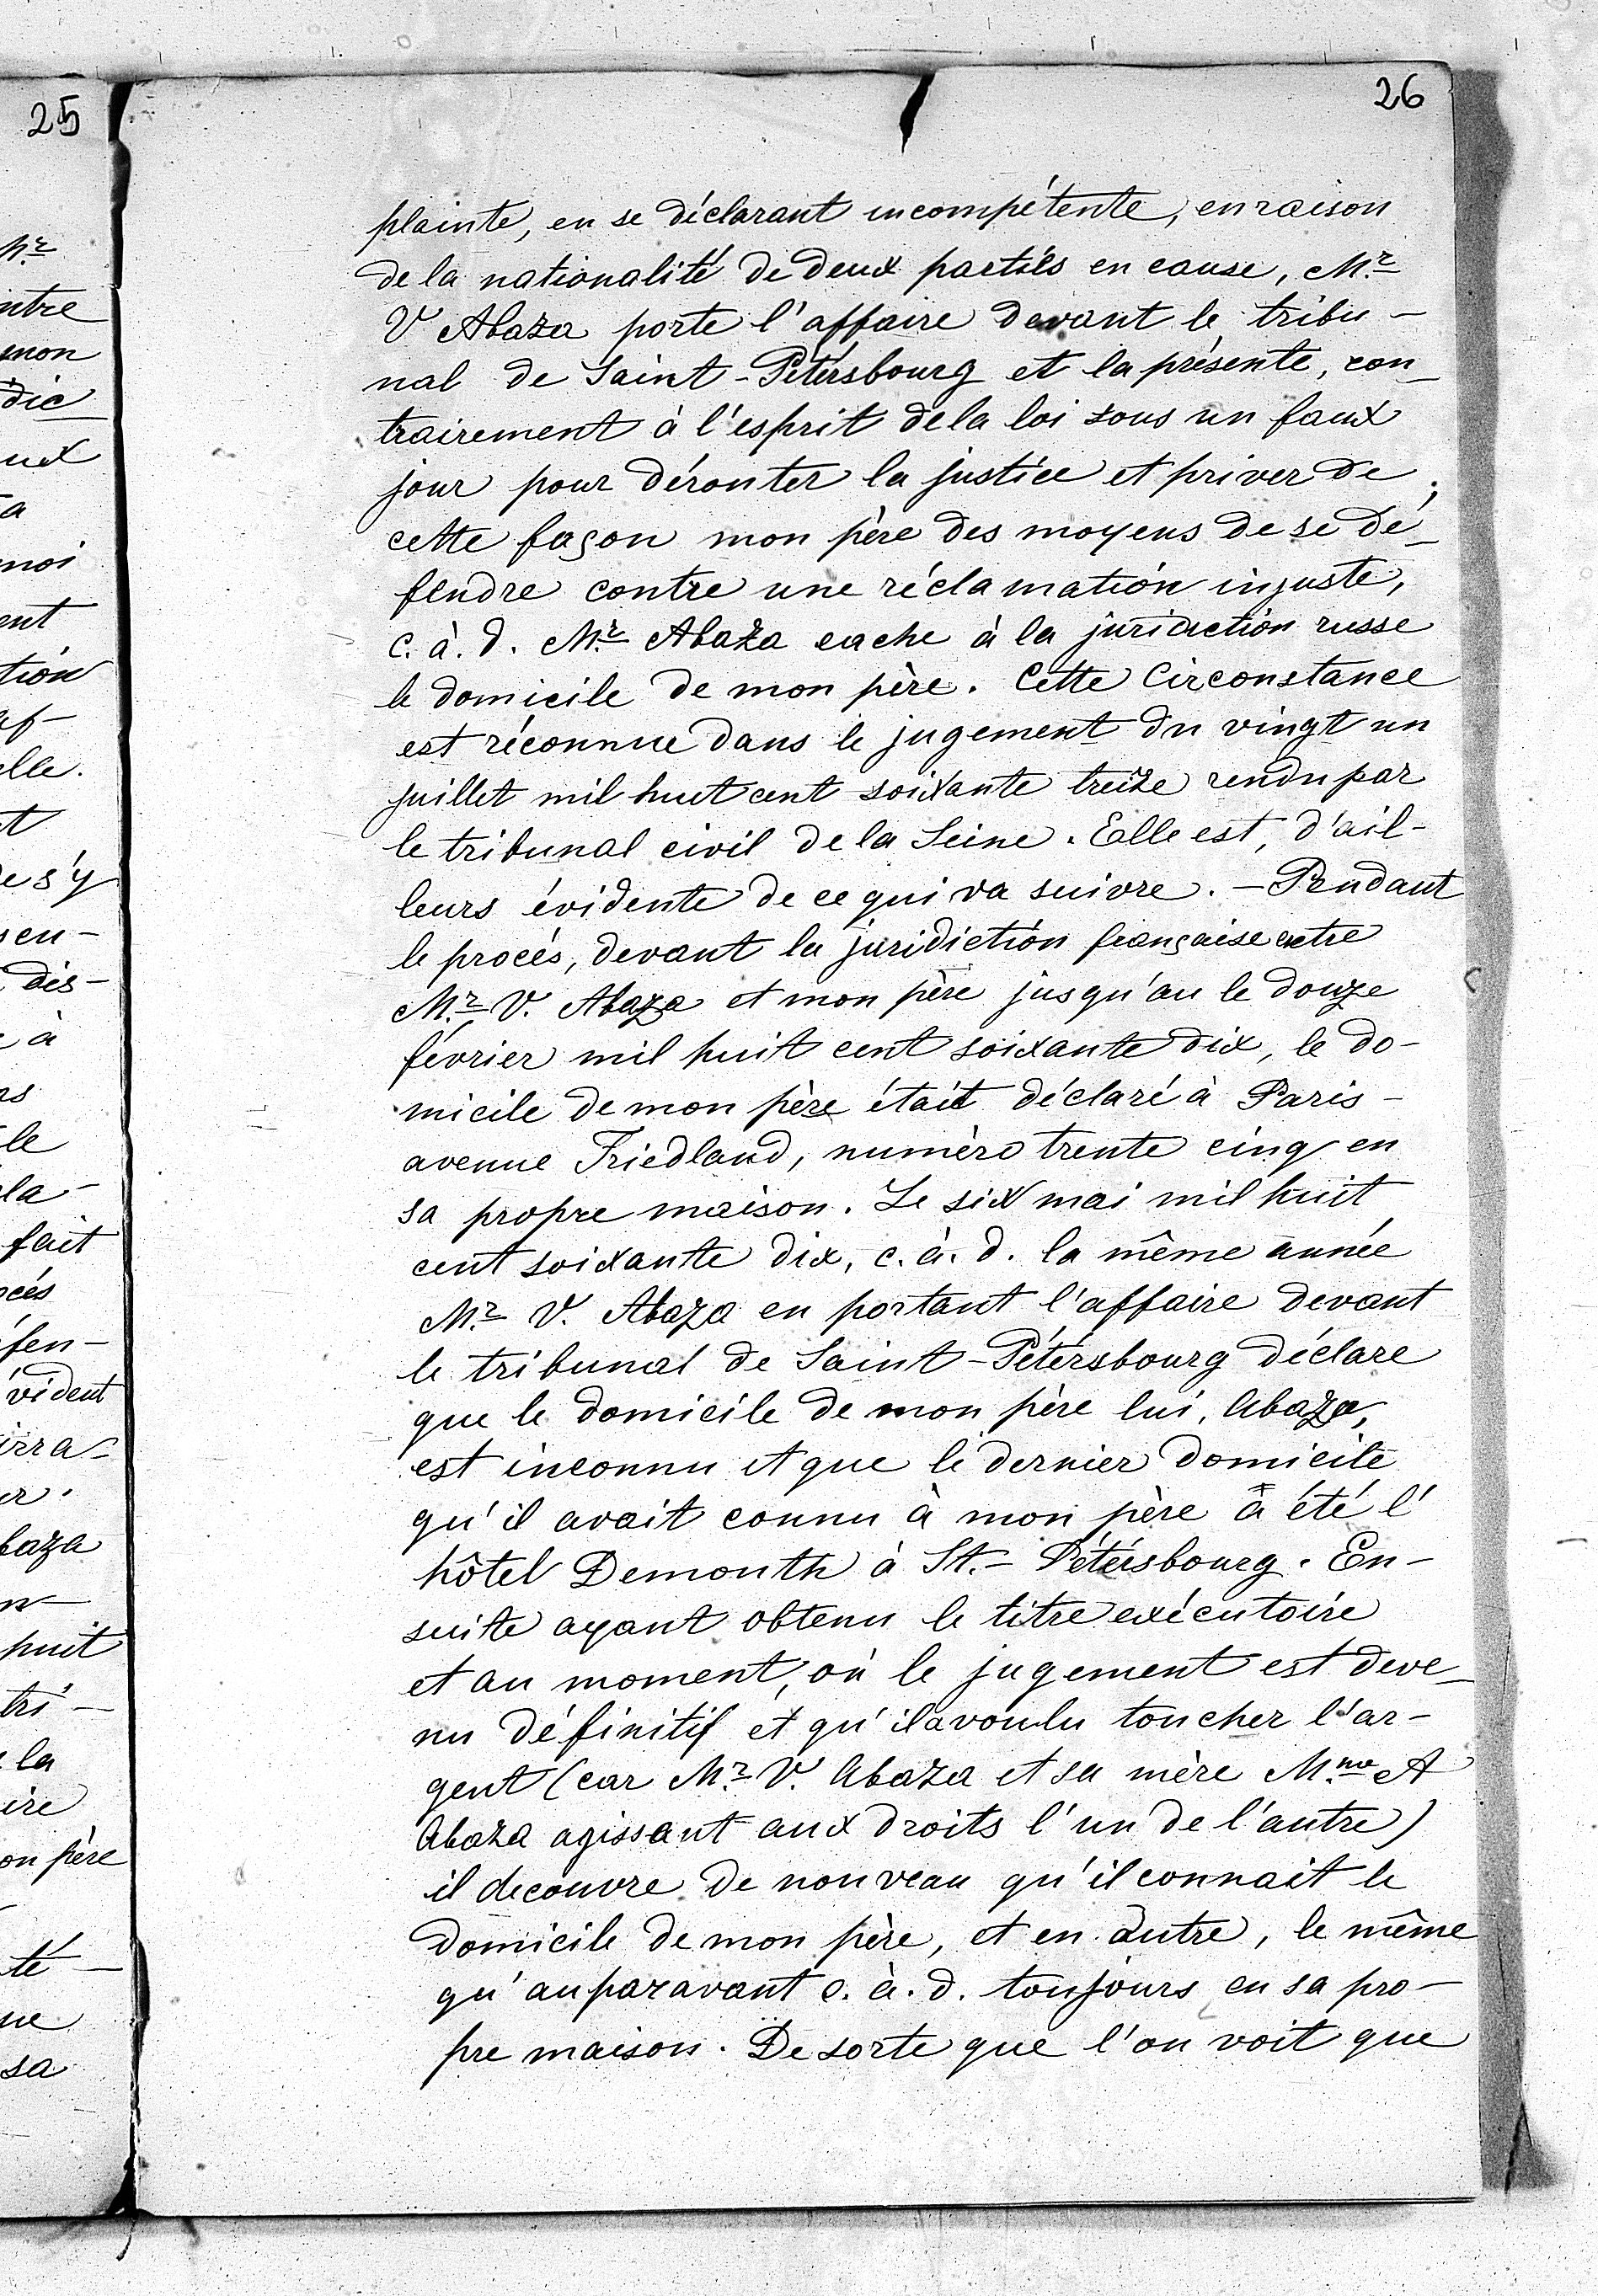 25
26
Mr
ntre
mon
dic
ux
a
moi
ent
tion
ef-
elle.
t
de s'y
seu-
dis-
e à
rs
le
la-
fait
océs
fen-
évident
irra-
er.
baza
n-
huit
tri-
la
ire
on père
té-
ne
sa
plainte, en se déclarant incompétente, en raison
de la nationalité de deux partiés en cause, Mr
V Abaza porte l'affaire devant le tribu-
nal de Saint-Pétérsbourg et la présente, con-
trairement à l'esprit de la loi sous un faux
jour pour dérouter la justice et priver de
cette façon mon père des moyens de se dé-
fendre contre une réclamation injuste,
c. à. d. Mr Abaza cache à la juridiction russe
le domicile de mon père. Cette Circonstance
est réconnue dans le jugement du vingt un
juillet mil huit cent soixante treize rendu par
le tribunal civil de la Seine. Elle est, d'ail-
leurs évidente de ce qui va suivre. - Pendant
le procés, devant la juridiction française entre
Mr V. Abaza et mon père jusqu'au le douze
février mil huit cent soixante dix, le do-
micile de mon père était déclaré à Paris-
avenue Friedland, numèro trente cinq en
sa propre maison. Le six mai mil huit
cent soixante dix, c. à. d. la même année
Mr V. Abaza en portant l'affaire devant
le tribunal de Saint-Pétérsbourg déclare
que le domicile de mon père lui, Abaza,
est inconnu et que le dernier domicile
qu'il avait connu à mon père a été l'
hôtel Demouth à St.-Pétérsbourg. En-
suite ayant obtenu le titre exécutoire
et au moment, où le jugement est deve-
nu définitif et qu'il a voulu toucher l'ar-
gent (car Mr V. Abaza et sa mère Mme A
Abaza agissant aux droits l'un de l'autre)
il decouvre de nouveau qu'il connait le
domicile de mon père, et en outre, le même
qu'auparavant c. à. d. toujours en sa pro-
pre maison. De sorte que l'on voit que